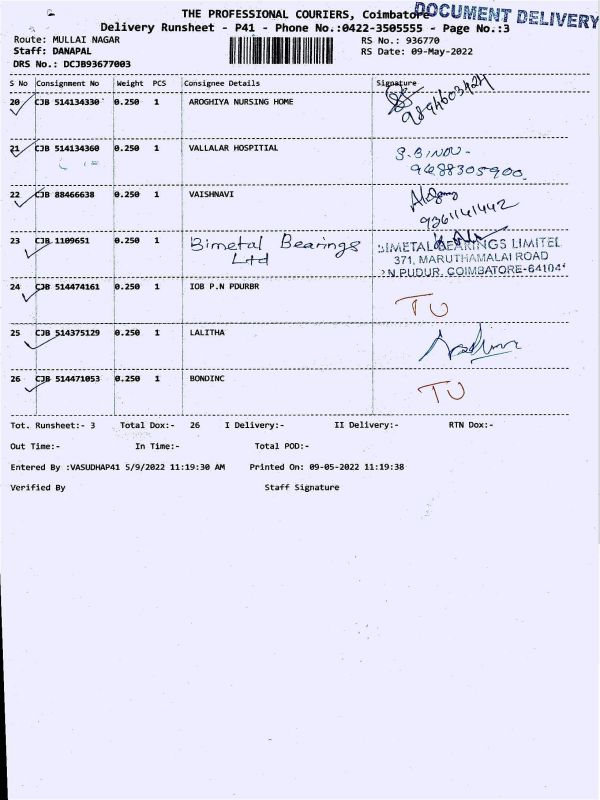 THE PROFESSIONAL COURIERS, Coimbatore
DOCUMENT DELIVERY
Delivery Runsheet - P41 - Phone No.:0422-3505555 - Page No.:3
Route: MULLAI NAGAR RS No.: 936770
Staff: DANAPAL RS Date: 09-May-2022
DRS No.: DCJB93677003
S No Consignment No Weight PCS Consignee Details Signature
20 CJB 514134330 0.250 1 AROGHIYA NURSING HOME
9894603424
21 CJB 514134360 0.250 1 VALLALAR HOSPITIAL S.BINDU-
9488305900
22 CJB 88466638 0.250 1 VAISHNAVI
9361141442
23 CJB 1109651 0.250 1 Bimetal Bearings
Ltd
BIMETAL BEARINGS LIMITED
371, MARUTHAMALAI ROAD
P.N PUDUR, COIMBATORE-641041
24 CJB 514474161 0.250 1 IOB P.N PDURBR
TU
25 CJB 514375129 0.250 1 LALITHA
26 CJB 514471053 0.250 1 BONDINC TU
Tot. Runsheet:- 3 Total Dox:- 26 I Delivery:- II Delivery:- RTN Dox:-
Out Time:- In Time:- Total POD:-
Entered By :VASUDHAP41 5/9/2022 11:19:30 AM Printed On: 09-05-2022 11:19:38
Verified By Staff Signature